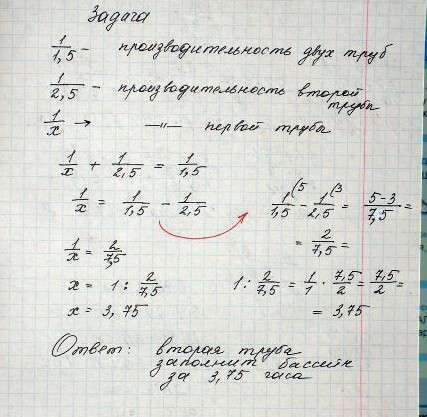 Задача
1/1,5 – производительность двух труб
1/2,5 – производительность второй трубы
1/x → —"— первой трубы
1/x + 1/2,5 = 1/1,5
1/x = 1/1,5 - 1/2,5
1(5/1,5 - 1(3/2,5 = 5-3/7,5 =
= 2/7,5 =
1/x = 2/7,5
x = 1 : 2/7,5
x = 3,75
1 : 2/7,5 = 1/1 · 7,5/2 = 7,5/2 =
= 3,75
Ответ: вторая труба
заполнит бассейн
за 3,75 часа